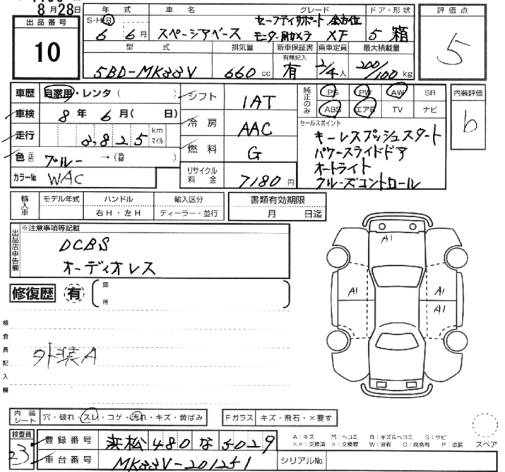 8月28日
出品番号
10
年式 車名 グレード ドア・形状
S・H・R セーフティサポート 全方位
6年 6月 スペーシアベース モニター用カメラ XF 5 箱
型式 排気量 新車保証書 有無記入 乗車定員 最大積載量
5BD-MK33V 660cc 有 2/4人 200/100kg
評価点
5
車歴 自家用・レンタ( )
車検 8年6月( 日)
走行 2,825 km マイル
色 ブルー →( )
カラーNo. WAC
シフト 1AT
冷房 AAC
燃料 G
リサイクル料金 7180円
純正のみ PS PW AW SR
ABS エアB TV ナビ
セールスポイント
キーレスプッシュスタート
パワースライドドア
オートライト
クルーズコントロール
内装評価
b
輸入車 モデル年式 ハンドル 輸入区分
右H・左H ディーラー・並行
書類有効期限
月 日迄
出品店申告欄
※注意事項等記載
DCBS
オーディオレス
修復歴 有 箇所
検査員記入欄
外装A
A1
A1 A1
内装シート 穴・破れ・スレ・コゲ・汚れ・キズ・黄ばみ
Fガラス キズ・飛石・×要す
検査員
23
登録番号 浜松480な5029
車台番号 MK33V-201251
シリアルNo.
スペア